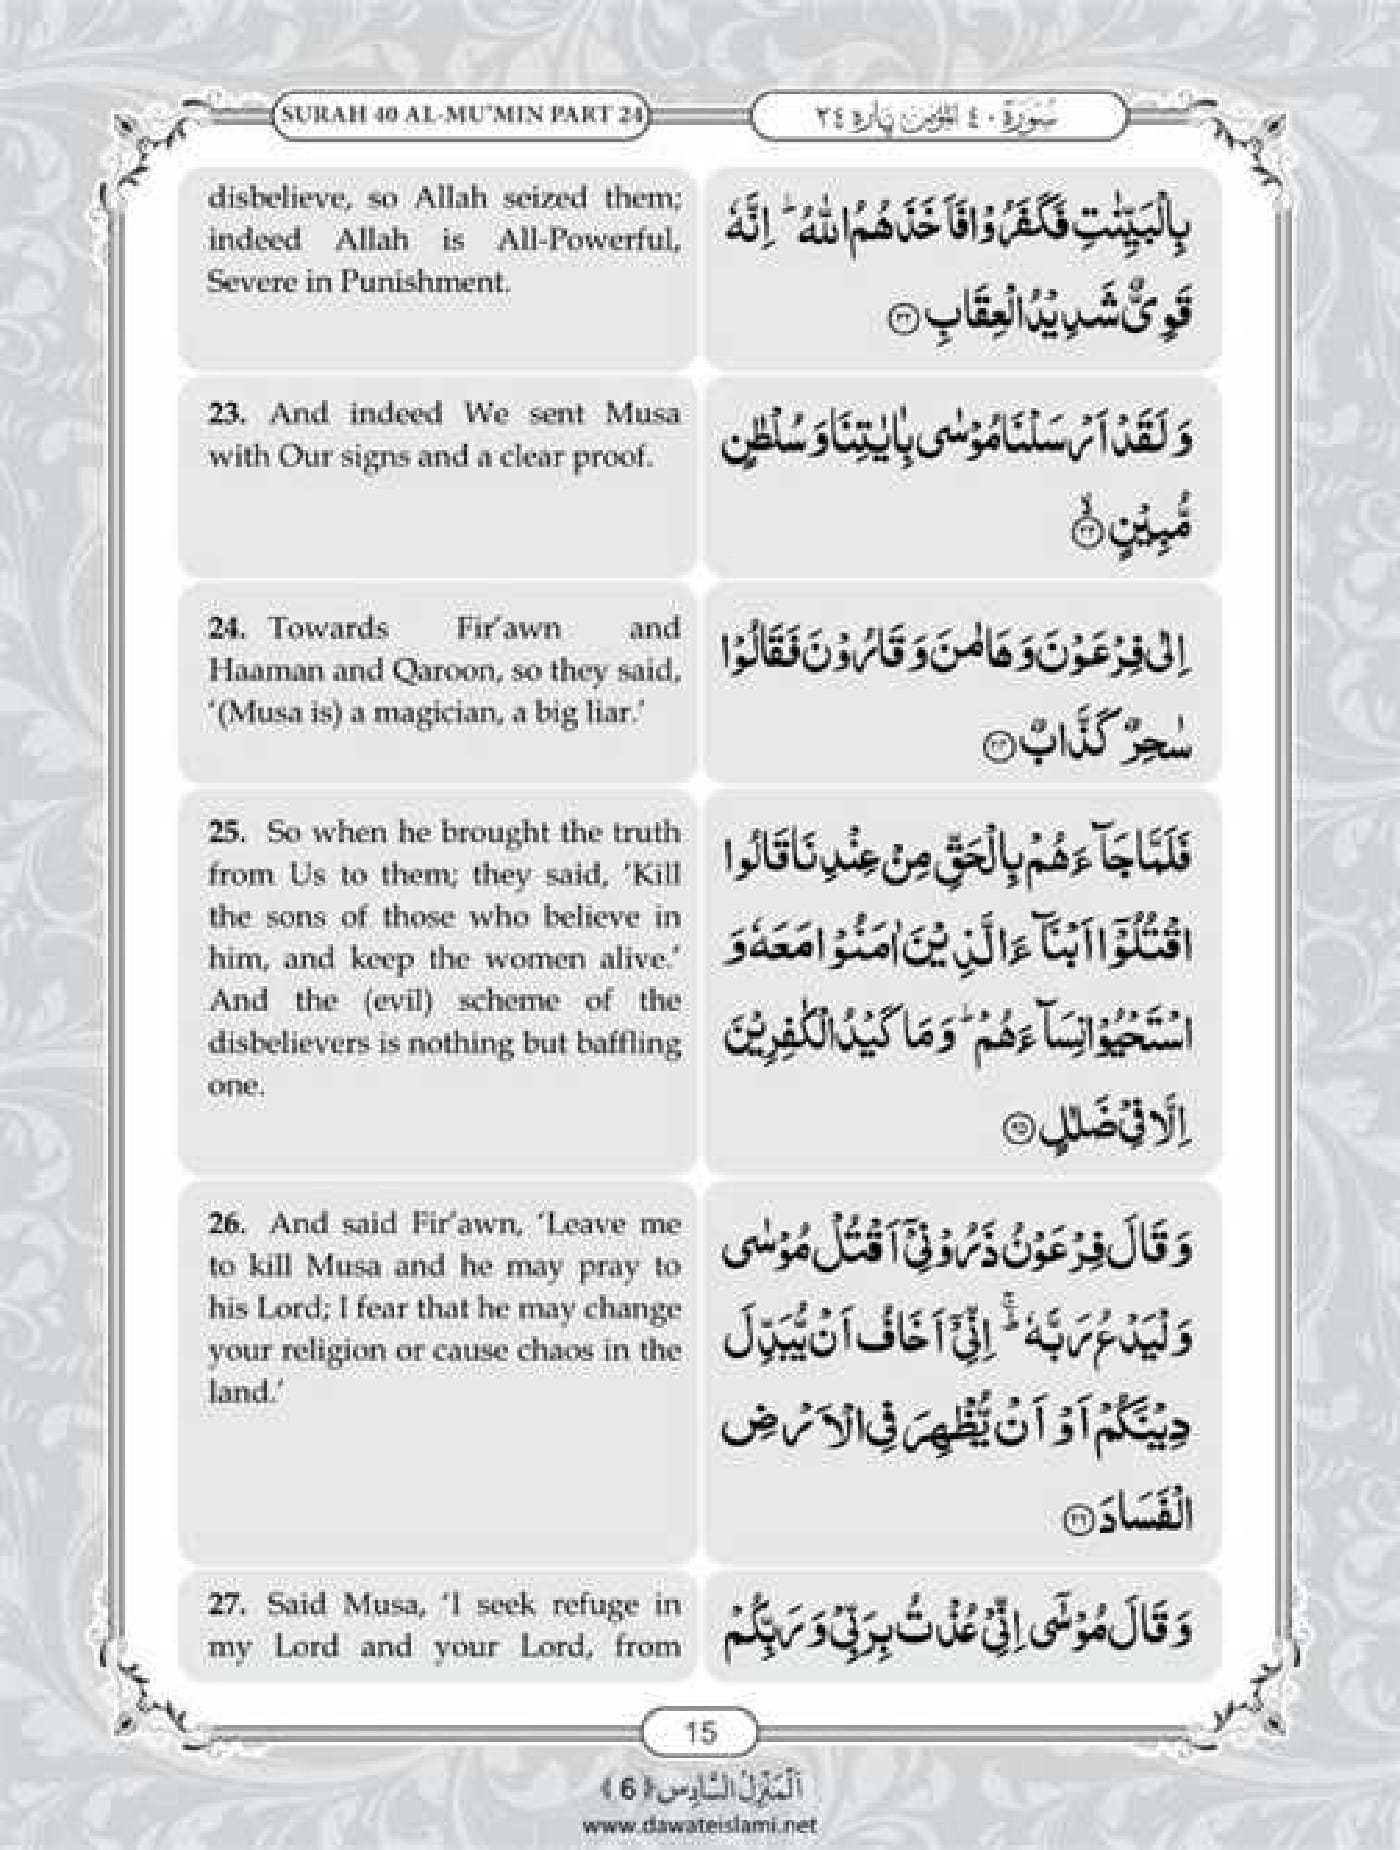 SURAH 40 AL-MU'MIN PART 24
سُوْرَة ٤٠ الْمُؤْمِن پَارَه ٢٤
disbelieve, so Allah seized them;
indeed Allah is All-Powerful,
Severe in Punishment.
بِالْبَيِّنٰتِ فَكَفَرُوْا فَاَخَذَهُمُ اللّٰهُ ؕ اِنَّهٗ
قَوِیٌّ شَدِیْدُ الْعِقَابِ ﴿۲۲﴾
23. And indeed We sent Musa
with Our signs and a clear proof.
وَ لَقَدْ اَرْسَلْنَا مُوْسٰی بِاٰیٰتِنَا وَ سُلْطٰنٍ
مُّبِیْنٍ ﴿ۙ۲۳﴾
24. Towards Fir'awn and
Haaman and Qaroon, so they said,
'(Musa is) a magician, a big liar.'
اِلٰی فِرْعَوْنَ وَ هَامٰنَ وَ قَارُوْنَ فَقَالُوْا
سٰحِرٌ كَذَّابٌ ﴿۲۴﴾
25. So when he brought the truth
from Us to them; they said, 'Kill
the sons of those who believe in
him, and keep the women alive.'
And the (evil) scheme of the
disbelievers is nothing but baffling
one.
فَلَمَّا جَآءَهُمْ بِالْحَقِّ مِنْ عِنْدِنَا قَالُوا
اقْتُلُوْۤا اَبْنَآءَ الَّذِیْنَ اٰمَنُوْا مَعَهٗ وَ
اسْتَحْیُوْا نِسَآءَهُمْ ؕ وَ مَا كَیْدُ الْكٰفِرِیْنَ
اِلَّا فِیْ ضَلٰلٍ ﴿۲۵﴾
26. And said Fir'awn, 'Leave me
to kill Musa and he may pray to
his Lord; I fear that he may change
your religion or cause chaos in the
land.'
وَ قَالَ فِرْعَوْنُ ذَرُوْنِیْۤ اَقْتُلْ مُوْسٰی
وَ لْیَدْعُ رَبَّهٗ ۚ اِنِّیْۤ اَخَافُ اَنْ یُّبَدِّلَ
دِیْنَكُمْ اَوْ اَنْ یُّظْهِرَ فِی الْاَرْضِ
الْفَسَادَ ﴿۲۶﴾
27. Said Musa, 'I seek refuge in
my Lord and your Lord, from
وَ قَالَ مُوْسٰۤی اِنِّیْ عُذْتُ بِرَبِّیْ وَ رَبِّكُمْ
15
اَلْمَنْزِلُ السَّادِس ﴿6﴾
www.dawateislami.net